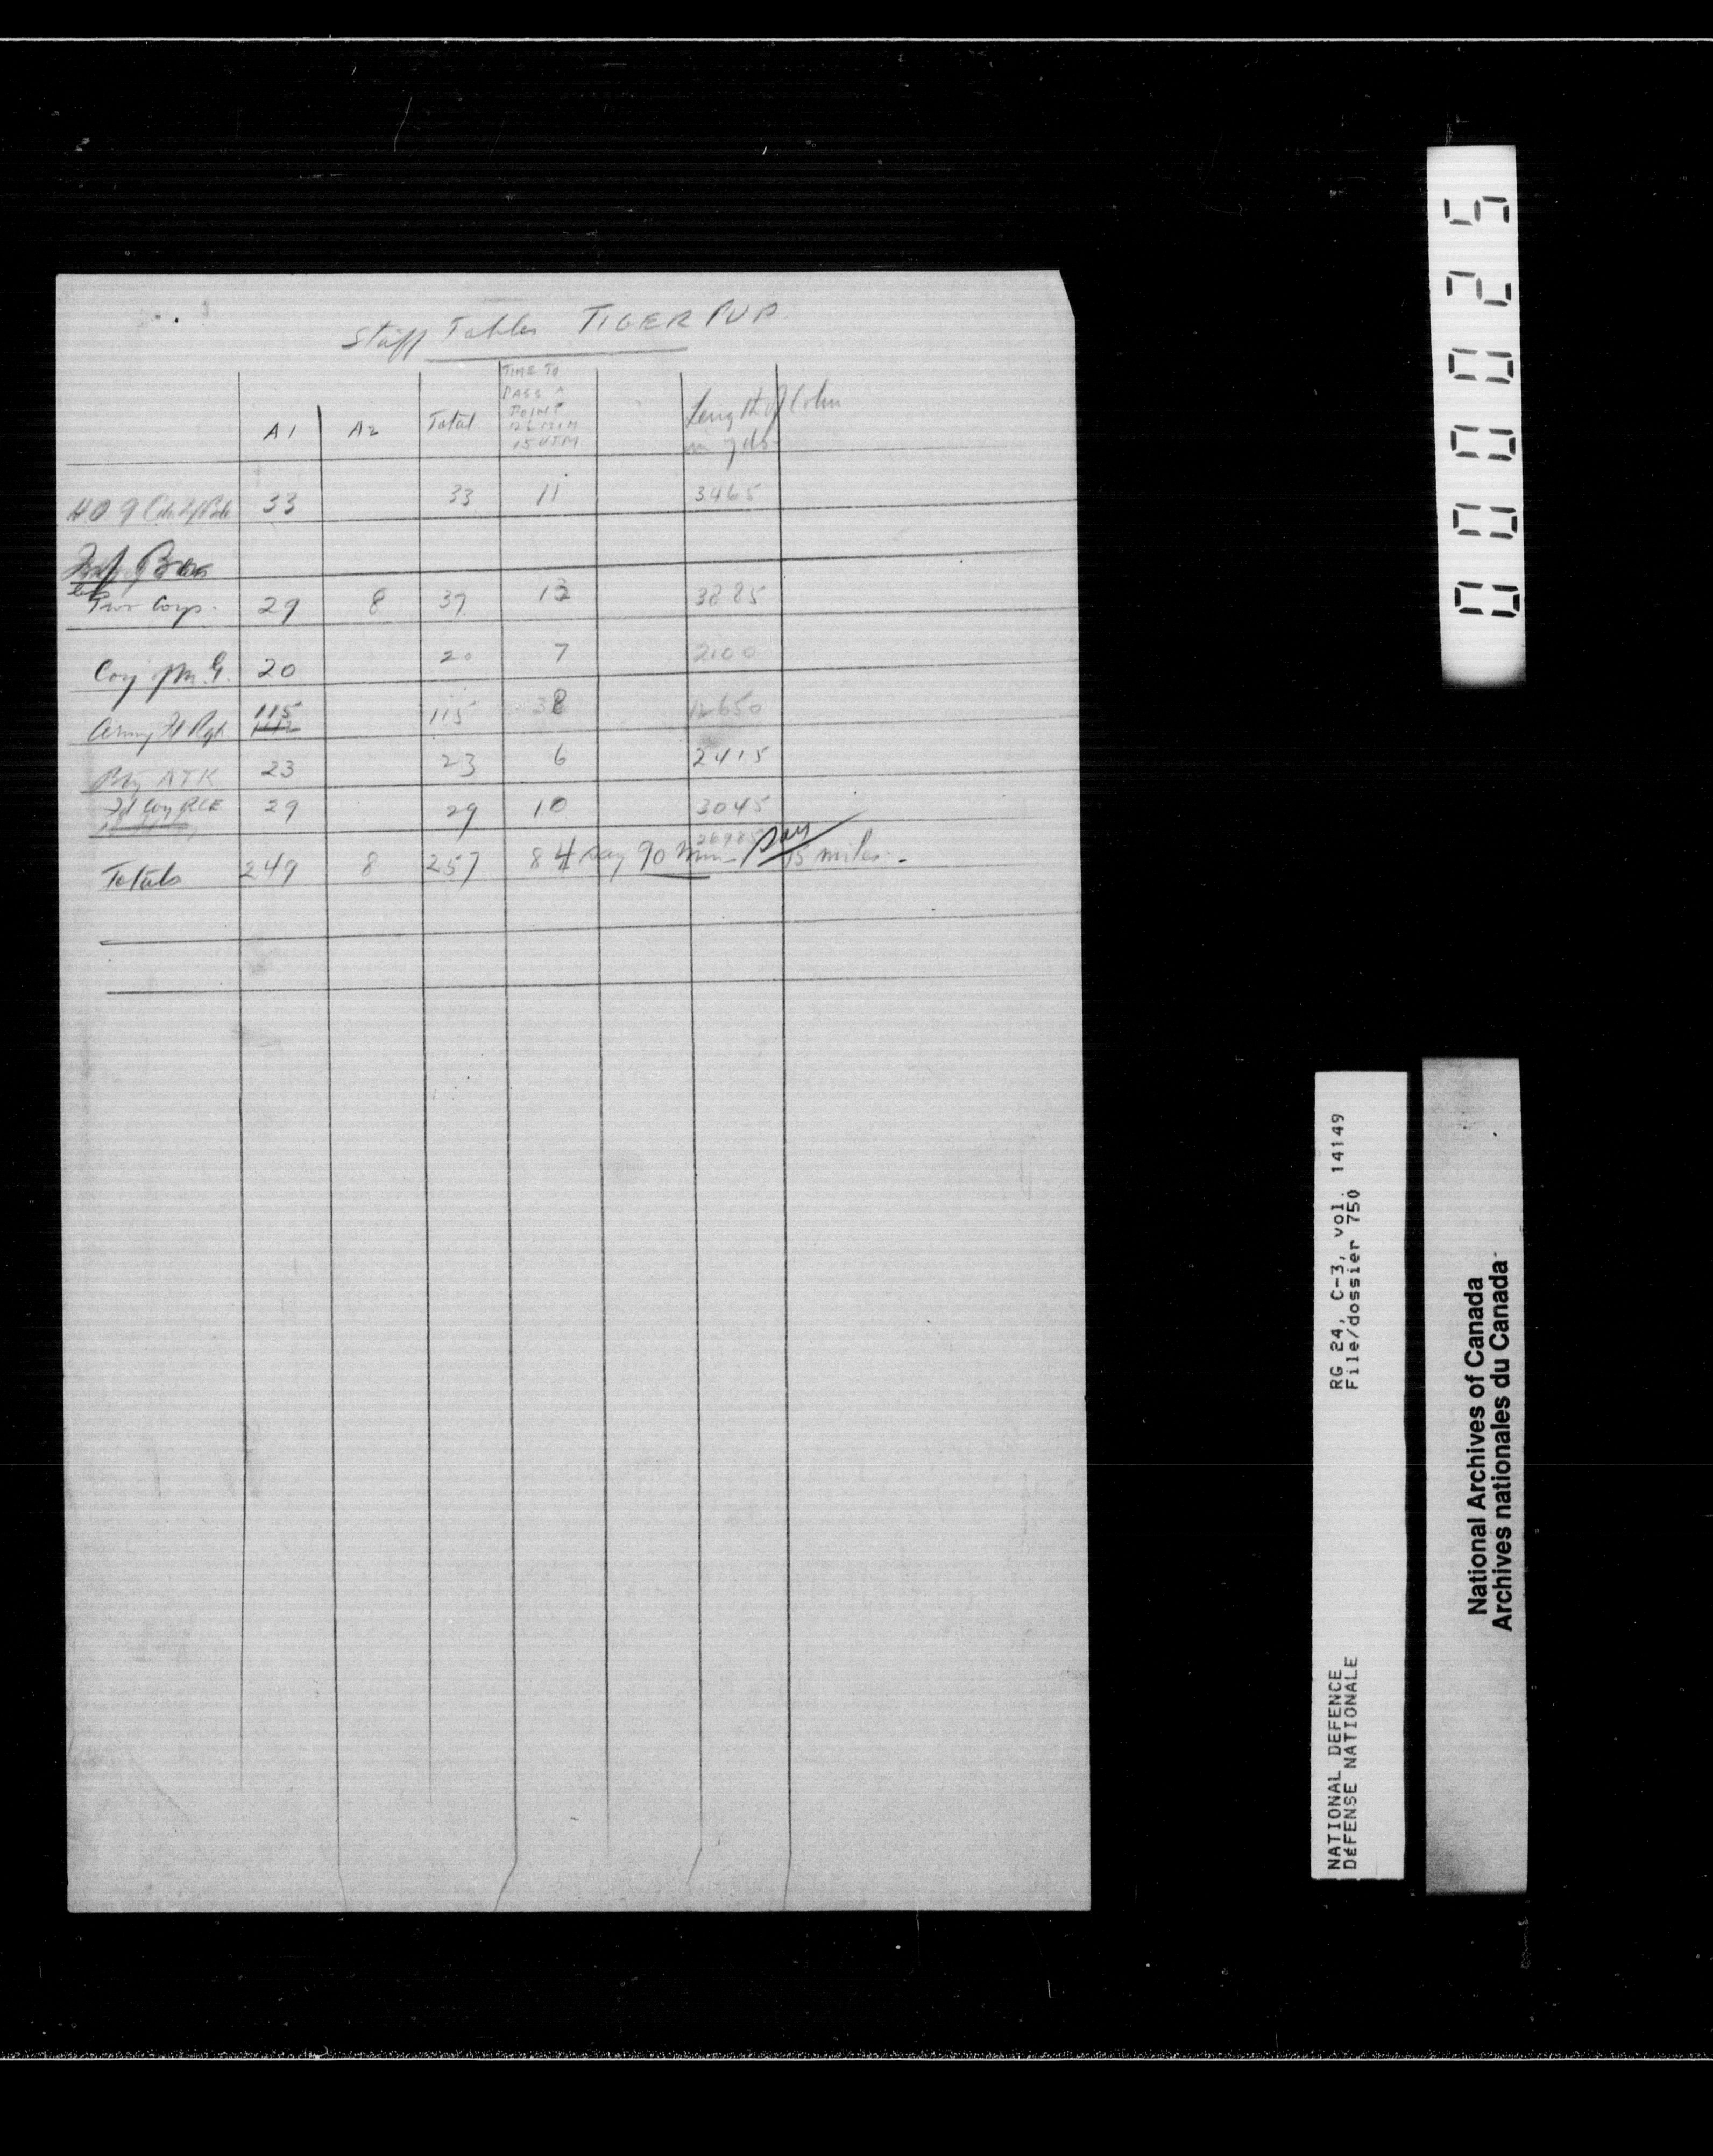 Staff Tables TIGER PUP
A1 A2 Total TIME TO PASS A POINT 12½ MIM 15 VTM Length of Colm in yds
HQ 9 Cdn Inf Bde 33 33 11 3465
Inf Bde
less Two Coys. 29 8 37 12 3885
Coy of M.G. 20 20 7 2100
Army Fd Rgt 115 115 38 12650
Bty ATK 23 23 6 2415
Fd Coy RCE 29 29 10 3045
26985
Totals 249 8 257 84 say 90 min say 15 miles.
0000025
RG 24, C-3, vol. 14149
File/dossier 750
NATIONAL DEFENCE
DÉFENSE NATIONALE
National Archives of Canada
Archives nationales du Canada